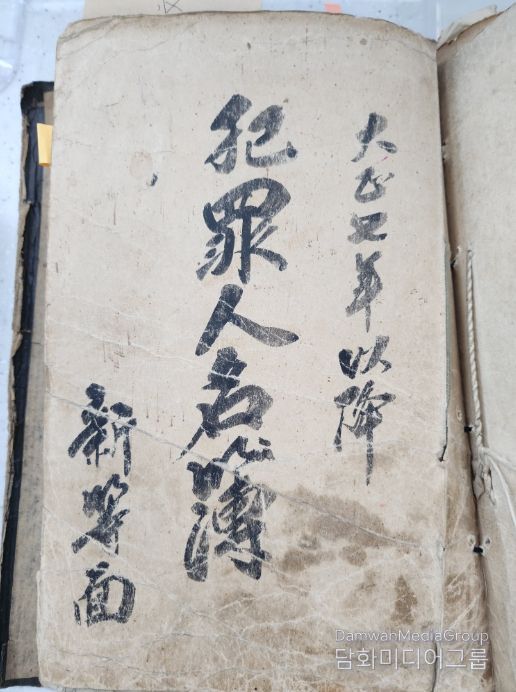 大正七年以降
犯罪人名簿
新等面
DamwanMediaGroup
담화미디어그룹